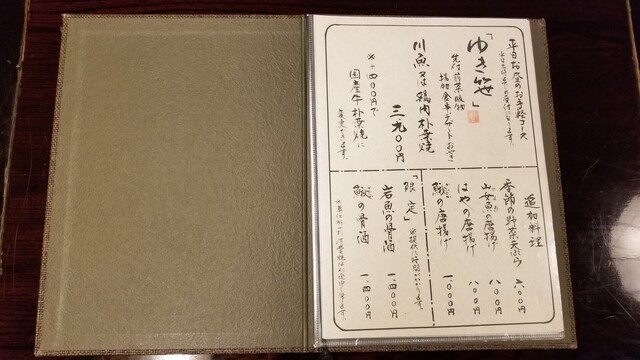 平日お昼のお手軽コース
「ゆき笹」
川魚又は鶏肉朴葉焼
三、九〇〇円
※+四〇〇円で
国産牛朴葉焼に
変更できます。
追加料理
季節の野菜天ぷら 六〇〇円
山女魚の唐揚げ 八〇〇円
はやの唐揚げ 八〇〇円
鰍の唐揚げ 一、〇〇〇円
「限定」
※提供に時間がかかります。
岩魚の骨酒 一、四〇〇円
鰍の骨酒 一、四〇〇円